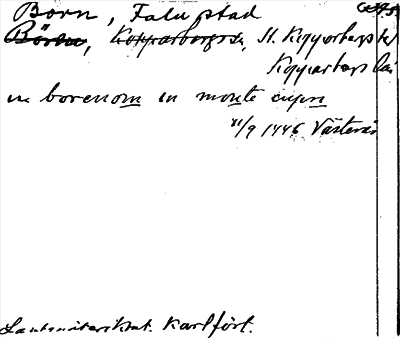 Born, Falu stad
Börsn, Kopparbergs s., St. Kopparbergs hd
Kopparbergs län
in borenom in monte cupri
11/9 1446 Västerås
Lantmäterikont. Kartfört.